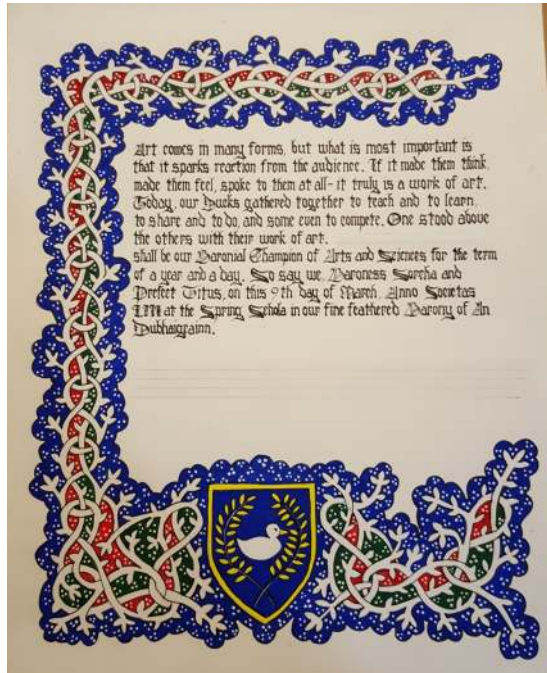 Art comes in many forms, but what is most important is
that it sparks reaction from the audience. If it made them think,
made them feel, spoke to them at all- it truly is a work of art.
Today, our Ducks gathered together to teach and to learn,
to share and to do, and some even to compete. One stood above
the others with their work of art.
shall be our Baronial Champion of Arts and Sciences for the term
of a year and a day. So say we, Baroness Sorcha and
Prefect Titus, on this 9th day of March, Anno Societas
LIII at the Spring Schola in our fine feathered Barony of An
Dubhaigeainn.